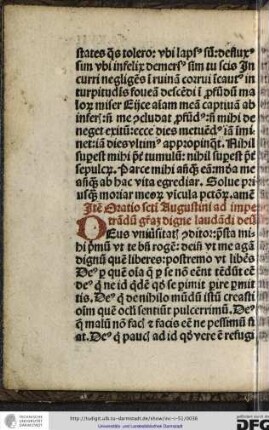 states q̃s tolero: vbi lapsꝰ sũ: defluxꝰ
sim vbi infelix demersꝰ sim tu scis In
curri negligẽs ĩ ruinã corrui ĩcautꝰ in
turpitudĩs foueã descẽdi ĩ ꝓfũdũ ma
lorũ miser Eijce aĩam meã captiuã ab
inferꝭ: ñ me ꝯcludat ꝓfũdꝰ: ñ mihi de
neget exitũ: ecce dies metuẽdꝰ iã ĩmi
net: iã dies vltimꝰ appropinq̃t. Nihil
supest mihi p̃t tumulũ: nihil supest p̃t
sepulcrũ. Parce mihi añq̃ eã: mba me
añq̃ ab hac vita egrediar. Solue pri
usq̃ moriar meorũ vĩcula pctõrũ. amẽ
Itẽ Oratio scti Augustini ad impe
trãdũ gr̃aꝫ digne laudãdi deũ
DEus vniũsitatꝭ ꝯditor: p̃sta mi
hi p̃mũ vt te bñ rogẽ: deiñ vt me agã
dignũ quẽ liberes: postremo vt libẽs
Deꝰ p quẽ oĩa q̃ p se nõ eẽnt tẽdũt eẽ
deꝰ q̃ ne id q̃dẽ qđ se pimit pire pmit
tis. Deꝰ q̃ de nihilo mũdũ istũ creasti
oĩm quẽ oclꝭ sentiũt pulcerrimũ. Deꝰ
q̃ malũ nõ facꝭ & facis eẽ ne pessimũ fi
at. Deꝰ q̃ paucꝭ ad id qđ vere ẽ refugi
http://tudigit.ulb.tu-darmstadt.de/show/inc-ii-52/0036
Universitäts- und Landesbibliothek Darmstadt